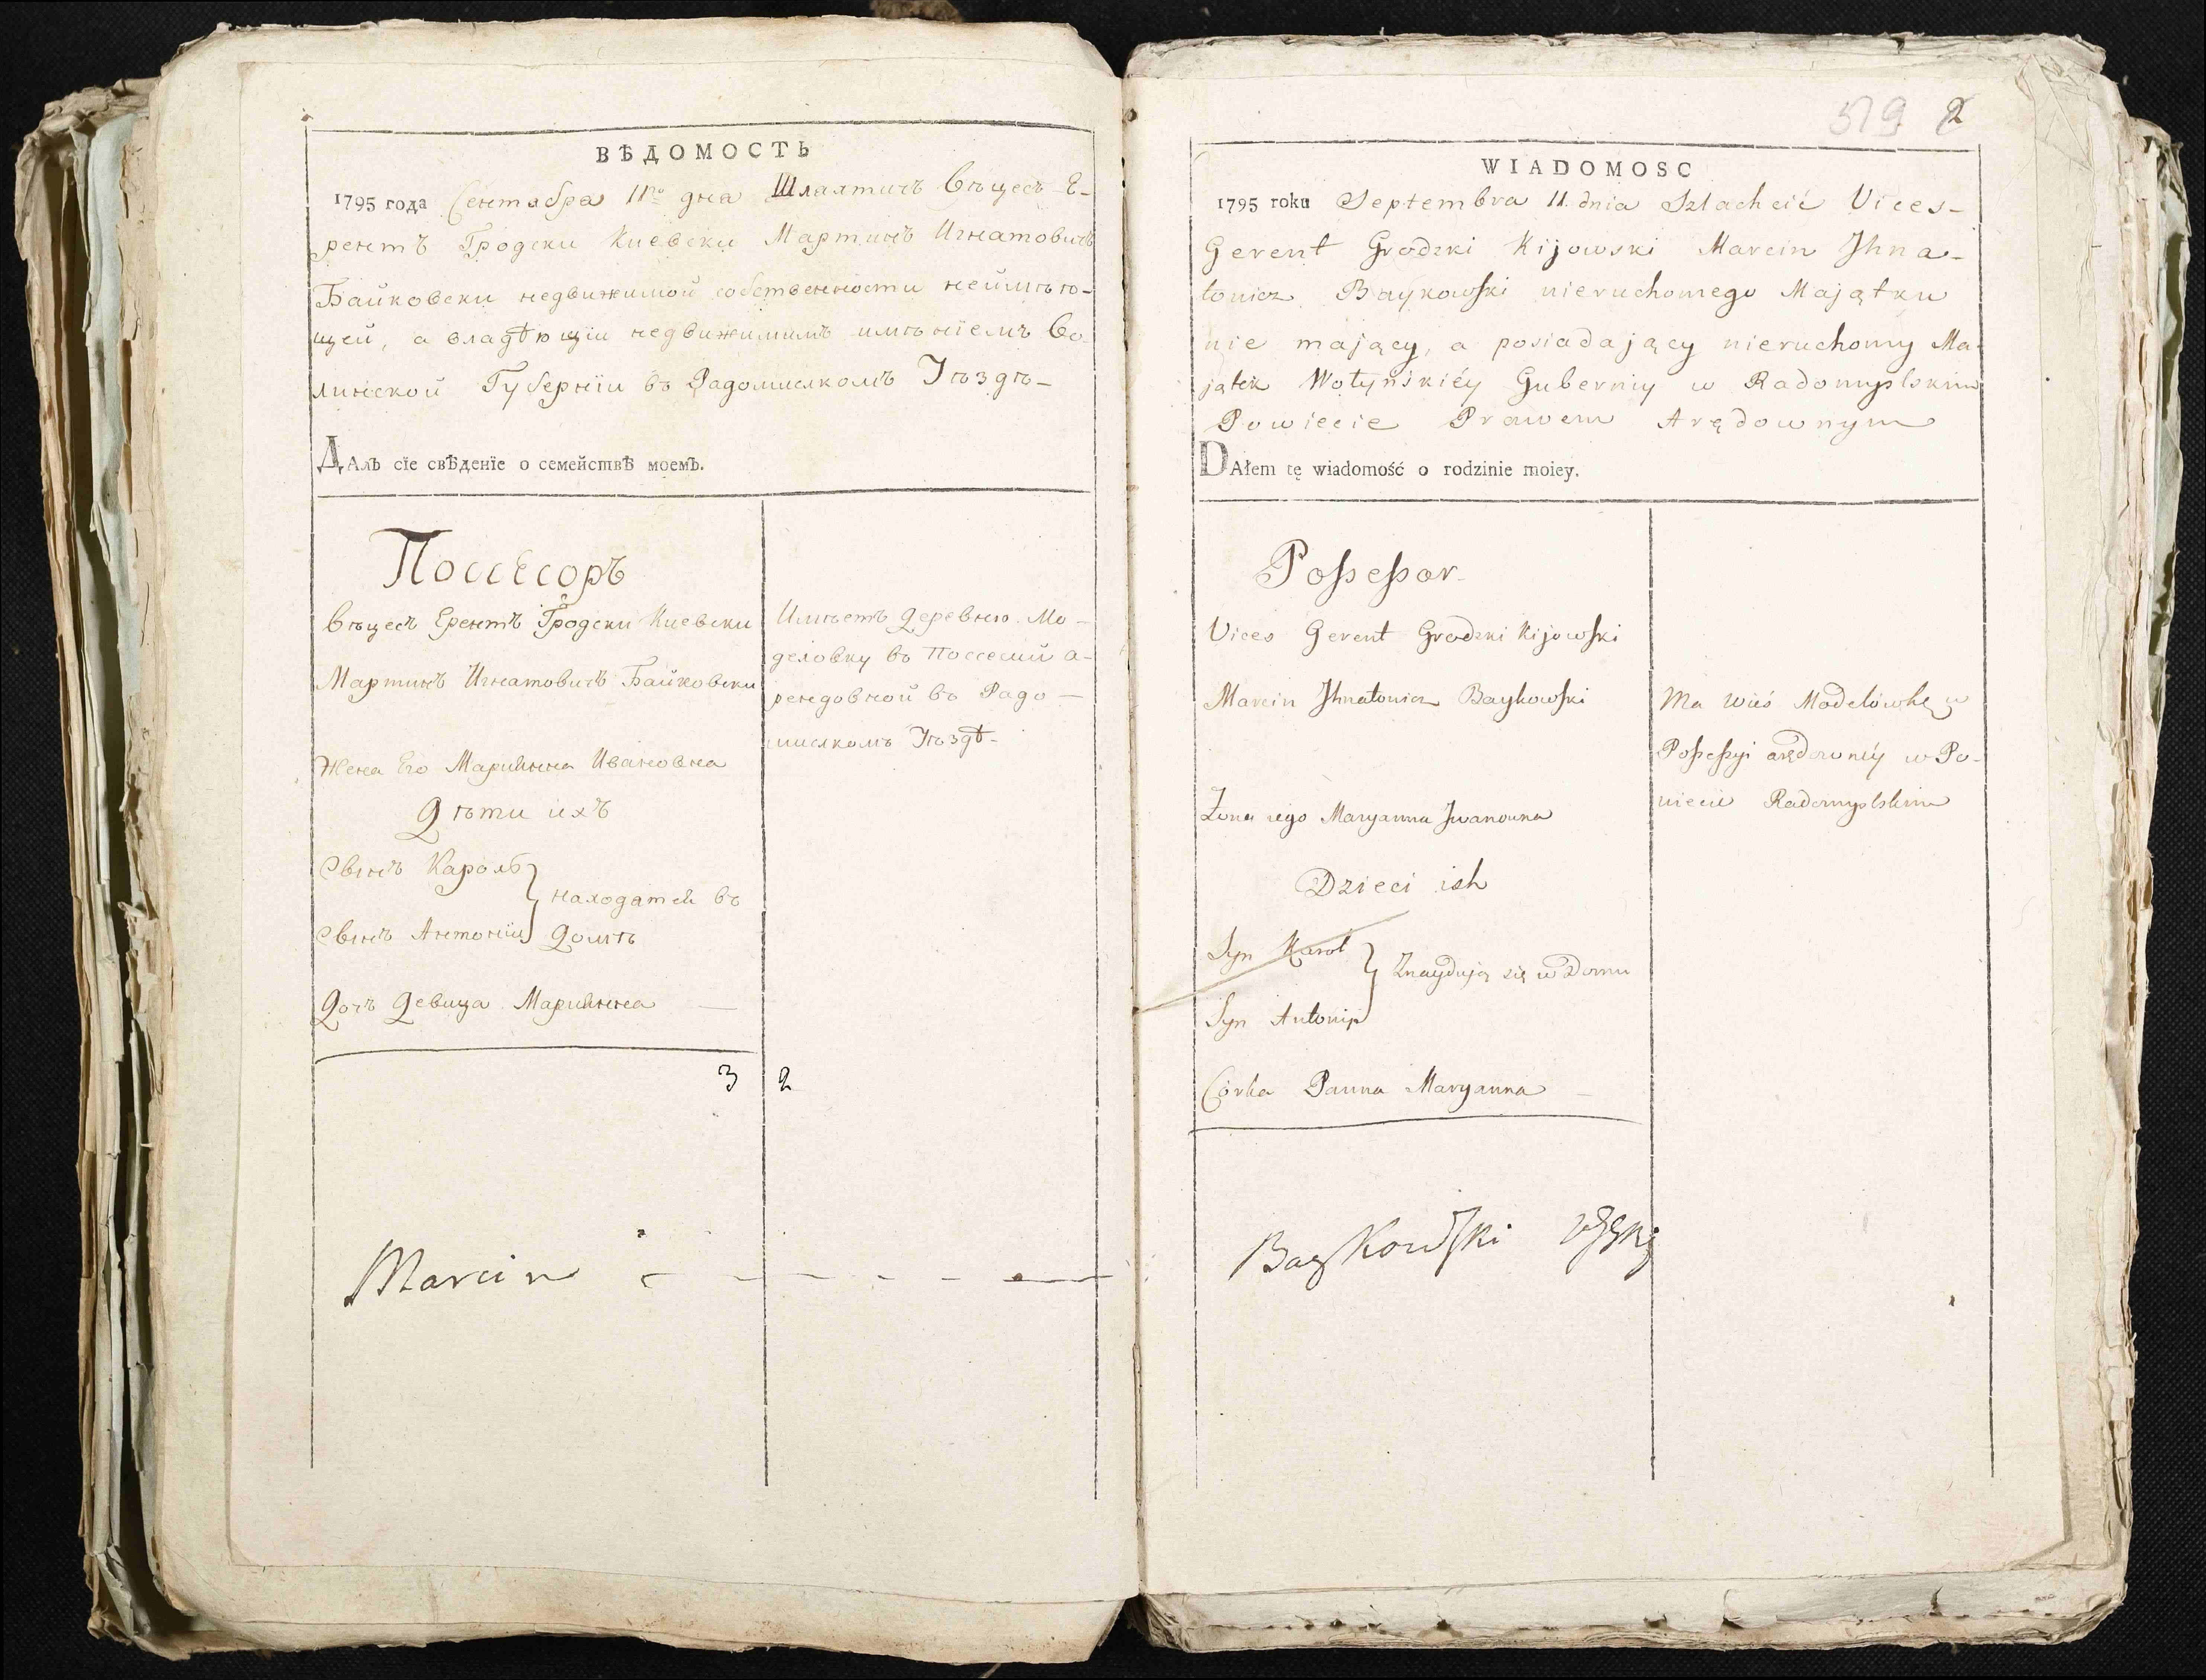 ВѢДОМОСТЬ
1795 года Сентабра 11го дна Шлахтичъ Вѣцесъ-Е-
рентъ Гродски Киевски Мартинъ Игнатовичъ
Байковски недвижимой собственности неимѣю-
щей, а владѣющїи недвижимимъ имѣнїемъ Во
линской Губернїи въ Радомислкомъ Уѣздѣ-
ДАлъ сїе свѣденїе о семействѣ моемъ.
Поссесоръ
Вѣцесъ Ерентъ Гродски Киевски
Мартинъ Игнатовичъ Байковски
Жена Его Марианна Ивановна
Дѣти ихъ
Сынъ Кароль
Сынъ Антонїи
находатся въ
Домѣ
Дочъ Девица Марианна —
Имѣетъ Деревню Мо-
деловку во Поссесии а-
рендовной во Радо —
мислкомъ Уѣздѣ-
3 2
Marcin
519 2
WIADOMOSC
1795 roku Septembra 11 dnia Szlachcić Vices-
Gerent Grodzki Kijowski Marcin Jhna-
towicz Baykowski nieruchomego Majątku
nie mający, a posiadający nieruchomy Ma-
jątek Wołyńskiéy Guberniy w Radomyslskim
Powiecie Prawem Arędownym
DAłem tę wiadomość o rodzinie moiey.
Possessor
Vices Gerent Grodzki Kijowski
Marcin Jhnatowicz Baykowski
Żona iego Maryanna Jwanowna
Dzieci ich
Syn Karol
Syn Antonij
Znaydują się w Domu
Córka Panna Maryanna —
Ma wieś Modelówkę w
Possessyi arędowniéy w Po-
wiecie Radomyslskim
Baykowski